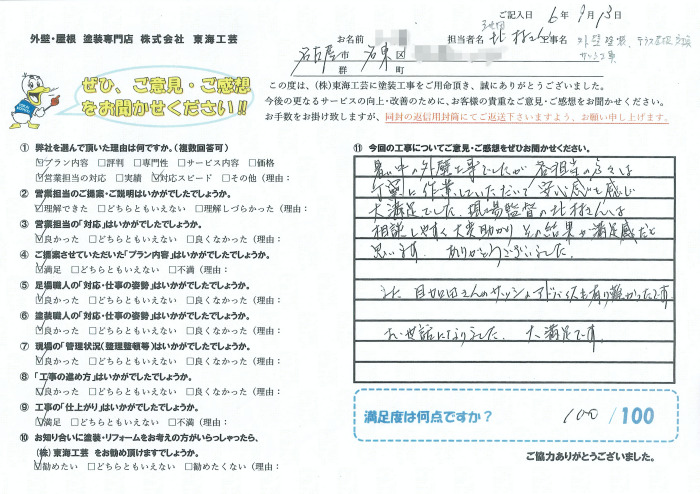 ご記入日 6年 9月13日
外壁・屋根 塗装専門店 株式会社 東海工芸
お名前
担当者名 北村さん
工事名 外壁塗装、テラス屋根
サッシ工事
名古屋市 名東区
郡 町
ぜひ、ご意見・ご感想
をお聞かせください!!
この度は、(株)東海工芸に塗装工事をご用命頂き、誠にありがとうございました。
今後の更なるサービスの向上・改善のために、お客様の貴重なご意見・ご感想をお聞かせください。
お手数をお掛け致しますが、同封の返信用封筒にてご返送下さいますよう、お願い申し上げます。
① 弊社を選んで頂いた理由は何ですか。(複数回答可)
☑プラン内容 □評判 □専門性 □サービス内容 □価格
☑営業担当の対応 □実績 ☑対応スピード □その他(理由:
② 営業担当のご提案・ご説明はいかがでしたでしょうか。
☑理解できた □どちらともいえない □理解しづらかった(理由:
③ 営業担当の「対応」はいかがでしたでしょうか。
☑良かった □どちらともいえない □良くなかった(理由:
④ ご提案させていただいた「プラン内容」はいかがでしたでしょうか。
☑満足 □どちらともいえない □不満(理由:
⑤ 足場職人の「対応・仕事の姿勢」はいかがでしたでしょうか。
☑良かった □どちらともいえない □良くなかった(理由:
⑥ 塗装職人の「対応・仕事の姿勢」はいかがでしたでしょうか。
☑良かった □どちらともいえない □良くなかった(理由:
⑦ 現場の「管理状況(整理整頓等)はいかがでしたでしょうか。
☑良かった □どちらともいえない □良くなかった(理由:
⑧ 「工事の進め方」はいかがでしたでしょうか。
☑良かった □どちらともいえない □良くなかった(理由:
⑨ 工事の「仕上がり」はいかがでしたでしょうか。
☑満足 □どちらともいえない □不満(理由:
⑩ お知り合いに塗装・リフォームをお考えの方がいらっしゃったら、
(株)東海工芸 をお勧め頂けますでしょうか。
☑勧めたい □どちらともいえない □勧めたくない(理由:
⑪ 今回の工事についてご意見・ご感想をぜひお聞かせください。
暑い中の外壁工事でしたが 各担当の方々は
丁寧に作業していただいて 安心感も感じ
大満足でした。現場監督の北村さんは
相談しやすく大変助かり その結果が満足感だと
思います。 ありがとうございました。
また、 さんのサッシのアドバイスも有り難かったです
お世話になりました。 大満足です。
満足度は何点ですか? 100 /100
ご協力ありがとうございました。